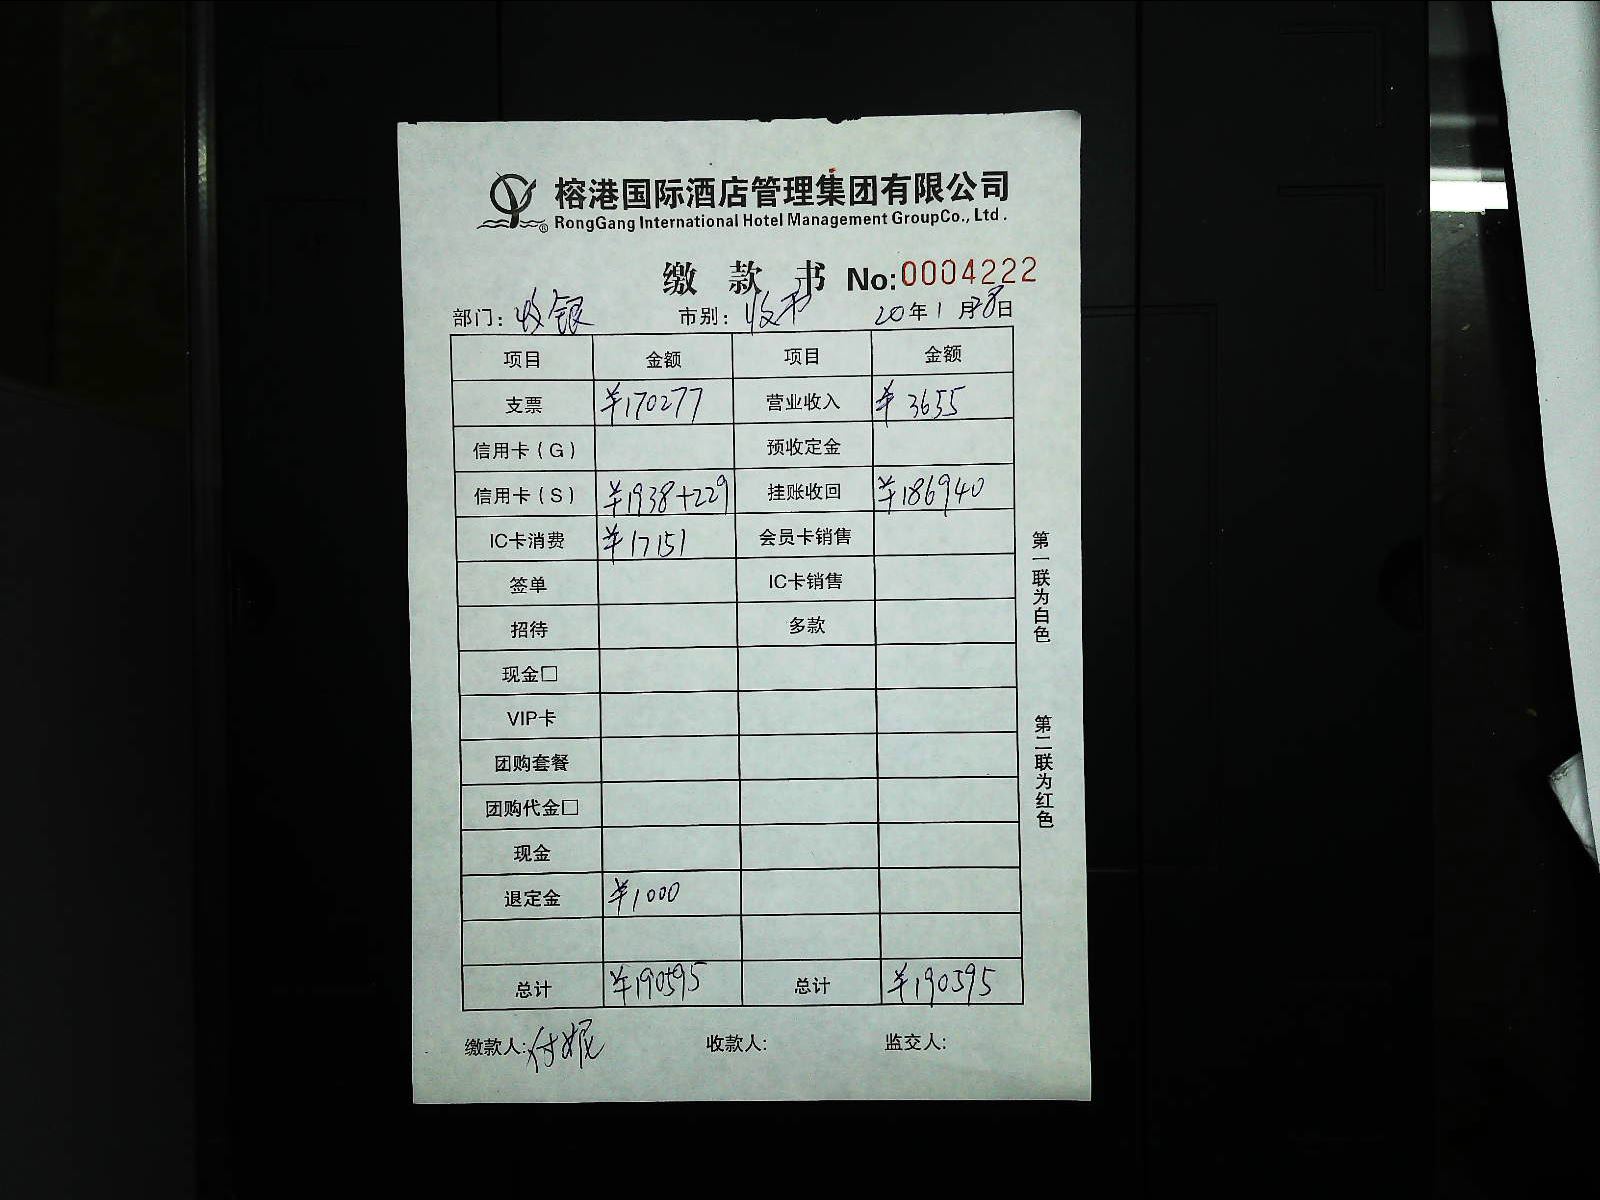 榕港国际酒店管理集团有限公司
RongGang International Hotel Management GroupCo., Ltd.
缴 款 书 No:0004222
部门: 收银 市别: 收市 20年1月28日
项目 金额 项目 金额
支票 ¥170277 营业收入 ¥3655
信用卡(G) 预收定金
信用卡(S) ¥1938+229 挂账收回 ¥186940
IC卡消费 ¥17151 会员卡销售
签单 IC卡销售
招待 多款
现金□
VIP卡
团购套餐
团购代金□
现金
退定金 ¥1000
总计 ¥190595 总计 ¥190595
缴款人:付妮 收款人: 监交人:
第一联为白色
第二联为红色